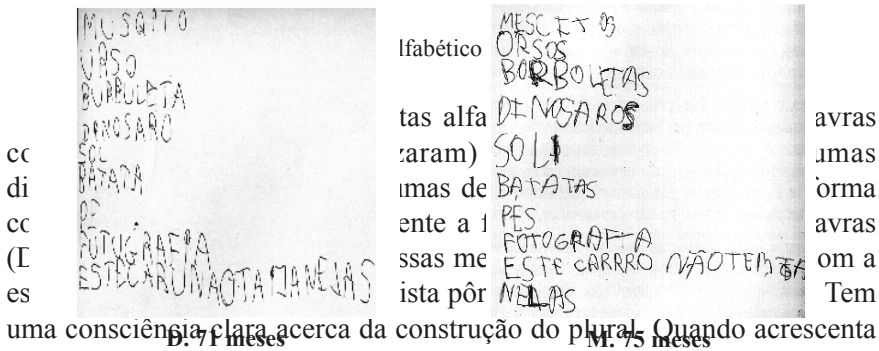 MUSQITO
URSO
BURBULETA
DINOSARO
SOL
BATATA
FUTUGRAFIA
ESTECARUNAOTAJANEJAS
MESCITOS
ORSOS
BORBOLETAS
DINOSAROS
SOLI
BATATAS
PÉS
FOTOGRAFIA
ESTE CARRRO NÃOTEM JA
NELAS
lfabético
tas alfa avras
co zaram) umas
di umas de orma
co ente a f avras
(D ssas me om a
es ista pôr Tem
uma consciência clara acerca da construção do plural. Quando acrescenta
D. 71 meses M. 75 meses